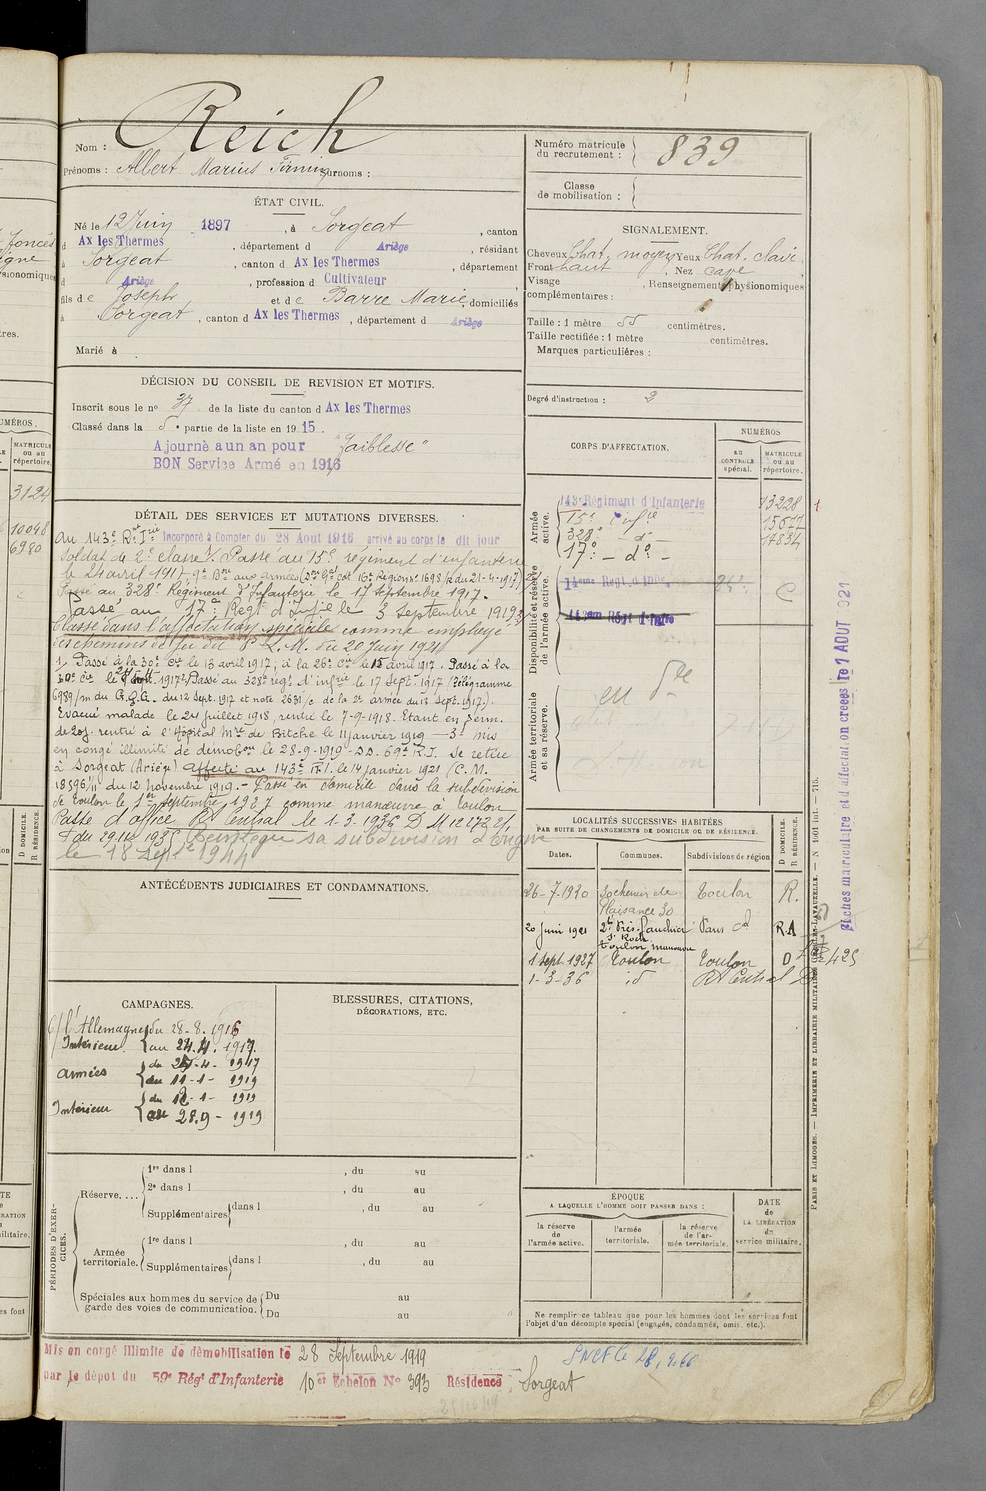 Nom : Reich
Prénoms : Albert Marius Firmin Surnoms :
ÉTAT CIVIL.
Né le 12 Juin 1897, à Sorgeat, canton
d Ax les Thermes, département d Ariège, résidant
à Sorgeat, canton d Ax les Thermes, département
d Ariège, profession d Cultivateur
fils de Joseph et de Barre Marie, domiciliés
à Sorgeat, canton d Ax les Thermes, département d Ariège
Marié à
DÉCISION DU CONSEIL DE REVISION ET MOTIFS.
Inscrit sous le n° 37 de la liste du canton d Ax les Thermes
Classé dans la 5e partie de la liste en 1915.
Ajourné a un an pour "faiblesse"
BON Service Armé en 1916
DÉTAIL DES SERVICES ET MUTATIONS DIVERSES.
Au 143e Rnt Irie Incorporé à Compter du 28 Aout 1916 arrivé au corps le dit jour
Soldat de 2e classe. Passé au 15e régiment d'infanterie
le 24 avril 1917, 9e Bon aux armées (Don Gal Cdt 16e Région n° 1698/R du 21-4-1917)
Passé au 328e Régiment d'Infanterie le 17 Septembre 1917.
Passé au 17e Regt d'Infie le 3 Septembre 1919
Classé dans l'affectation spéciale comme employé
des chemins de fer du P.L.M. du 20 Juin 1921
1) Passé à la 30e Cie le 16 avril 1917; à la 26e Cie le 18 avril 1917. Passé à la
30e Cie le 1917 Passé au 328e regt d'infrie le 17 Sept 1917 (Télégramme
6989/m du G.Q.G. du 12 Sept. 1917 et note 2631/c de la 2e armée du 13 Sept. 1917.)
Evacué malade le 24 juillet 1918, rentré le 7-9-1918. Etant en perm.
de 20j. rentré à l'hôpital Mre de Bitche le 11 janvier 1919 — 3° mis
en congé illimité de démobon le 28-9-1919 - D.D. 59e R.I. Se retire
à Sorgeat (Ariège) affecté au 143e R.I. le 14 janvier 1921 (C.M.
18596 1/11 du 12 Novembre 1919. - Passé en domicile dans la subdivision
de Toulon le 1er septembre 1927 comme manœuvre à Toulon
Passé d'office Rt Central le 1.3.1936 D M 12272 2/1
du 29.11.1935 Réintègre sa subdivision d'Origine
le 18 Septe 1944
ANTÉCÉDENTS JUDICIAIRES ET CONDAMNATIONS.
CAMPAGNES.
C/ l'Allemagne du 28-8.1916
Intérieur au 24.4.1917.
armées du 25-4-1917
au 11-1-1919
Intérieur du 12-1-1919
au 28.9-1919
BLESSURES, CITATIONS,
DÉCORATIONS, ETC.
PÉRIODES D'EXERCICES.
Réserve. . . .
1re dans l , du au
2e dans l , du au
Supplémentaires dans l , du au
Armée territoriale.
1re dans l , du au
Supplémentaires dans l , du au
Spéciales aux hommes du service de garde des voies de communication.
Du au
Du au
Mis en congé illimité de démobilisation le 28 Septembre 1919
par le dépôt du 59e Régt d'Infanterie 10e Echelon N° 393 Résidence : Sorgeat
Numéro matricule
du recrutement : 839
Classe
de mobilisation :
SIGNALEMENT.
Cheveux Chat. moyen Yeux Chat. clair
Front haut, Nez cave
Visage , Renseignements physionomiques
complémentaires :
Taille : 1 mètre 55 centimètres.
Taille rectifiée : 1 mètre centimètres.
Marques particulières :
Degré d'instruction : 2
CORPS D'AFFECTATION.
NUMÉROS
AU CONTROLE spécial.
MATRICULE ou au répertoire.
Armée active.
143e Régiment d'Infanterie 13228
15e infrie 15677
328e - d° - 17834
17e - d° -
Disponibilité et réserve de l'armée active.
Armée territoriale et sa réserve.
LOCALITÉS SUCCESSIVES HABITÉES
PAR SUITE DE CHANGEMENTS DE DOMICILE OU DE RÉSIDENCE.
Dates. Communes. Subdivisions de région D DOMICILE. R RÉSIDENCE.
26-7-1920 30 chemin de Plaisance 30 Toulon R.
20 Juin 1921 St Roch Toulon manœuvre R.A
1 sept. 1927 Toulon Toulon D
1-3-36 id Rt Central
ÉPOQUE
A LAQUELLE L'HOMME DOIT PASSER DANS :
la réserve de l'armée active.
l'armée territoriale.
la réserve de l'armée territoriale.
DATE de LA LIBÉRATION du service militaire.
Ne remplir ce tableau que pour les hommes dont les services font
l'objet d'un décompte spécial (engagés, condamnés, omis, etc.).
SNCF le
PARIS ET LIMOGES. — IMPRIMERIE ET LIBRAIRIE MILITAIRES CHARLES-LAVAUZELLE. — N° 1061 Int. — 715.
Fiches matriculaire et d'affectation créées le 1 AOUT 1921
MATRICULE
ou au
répertoire.
3124
10048
6980